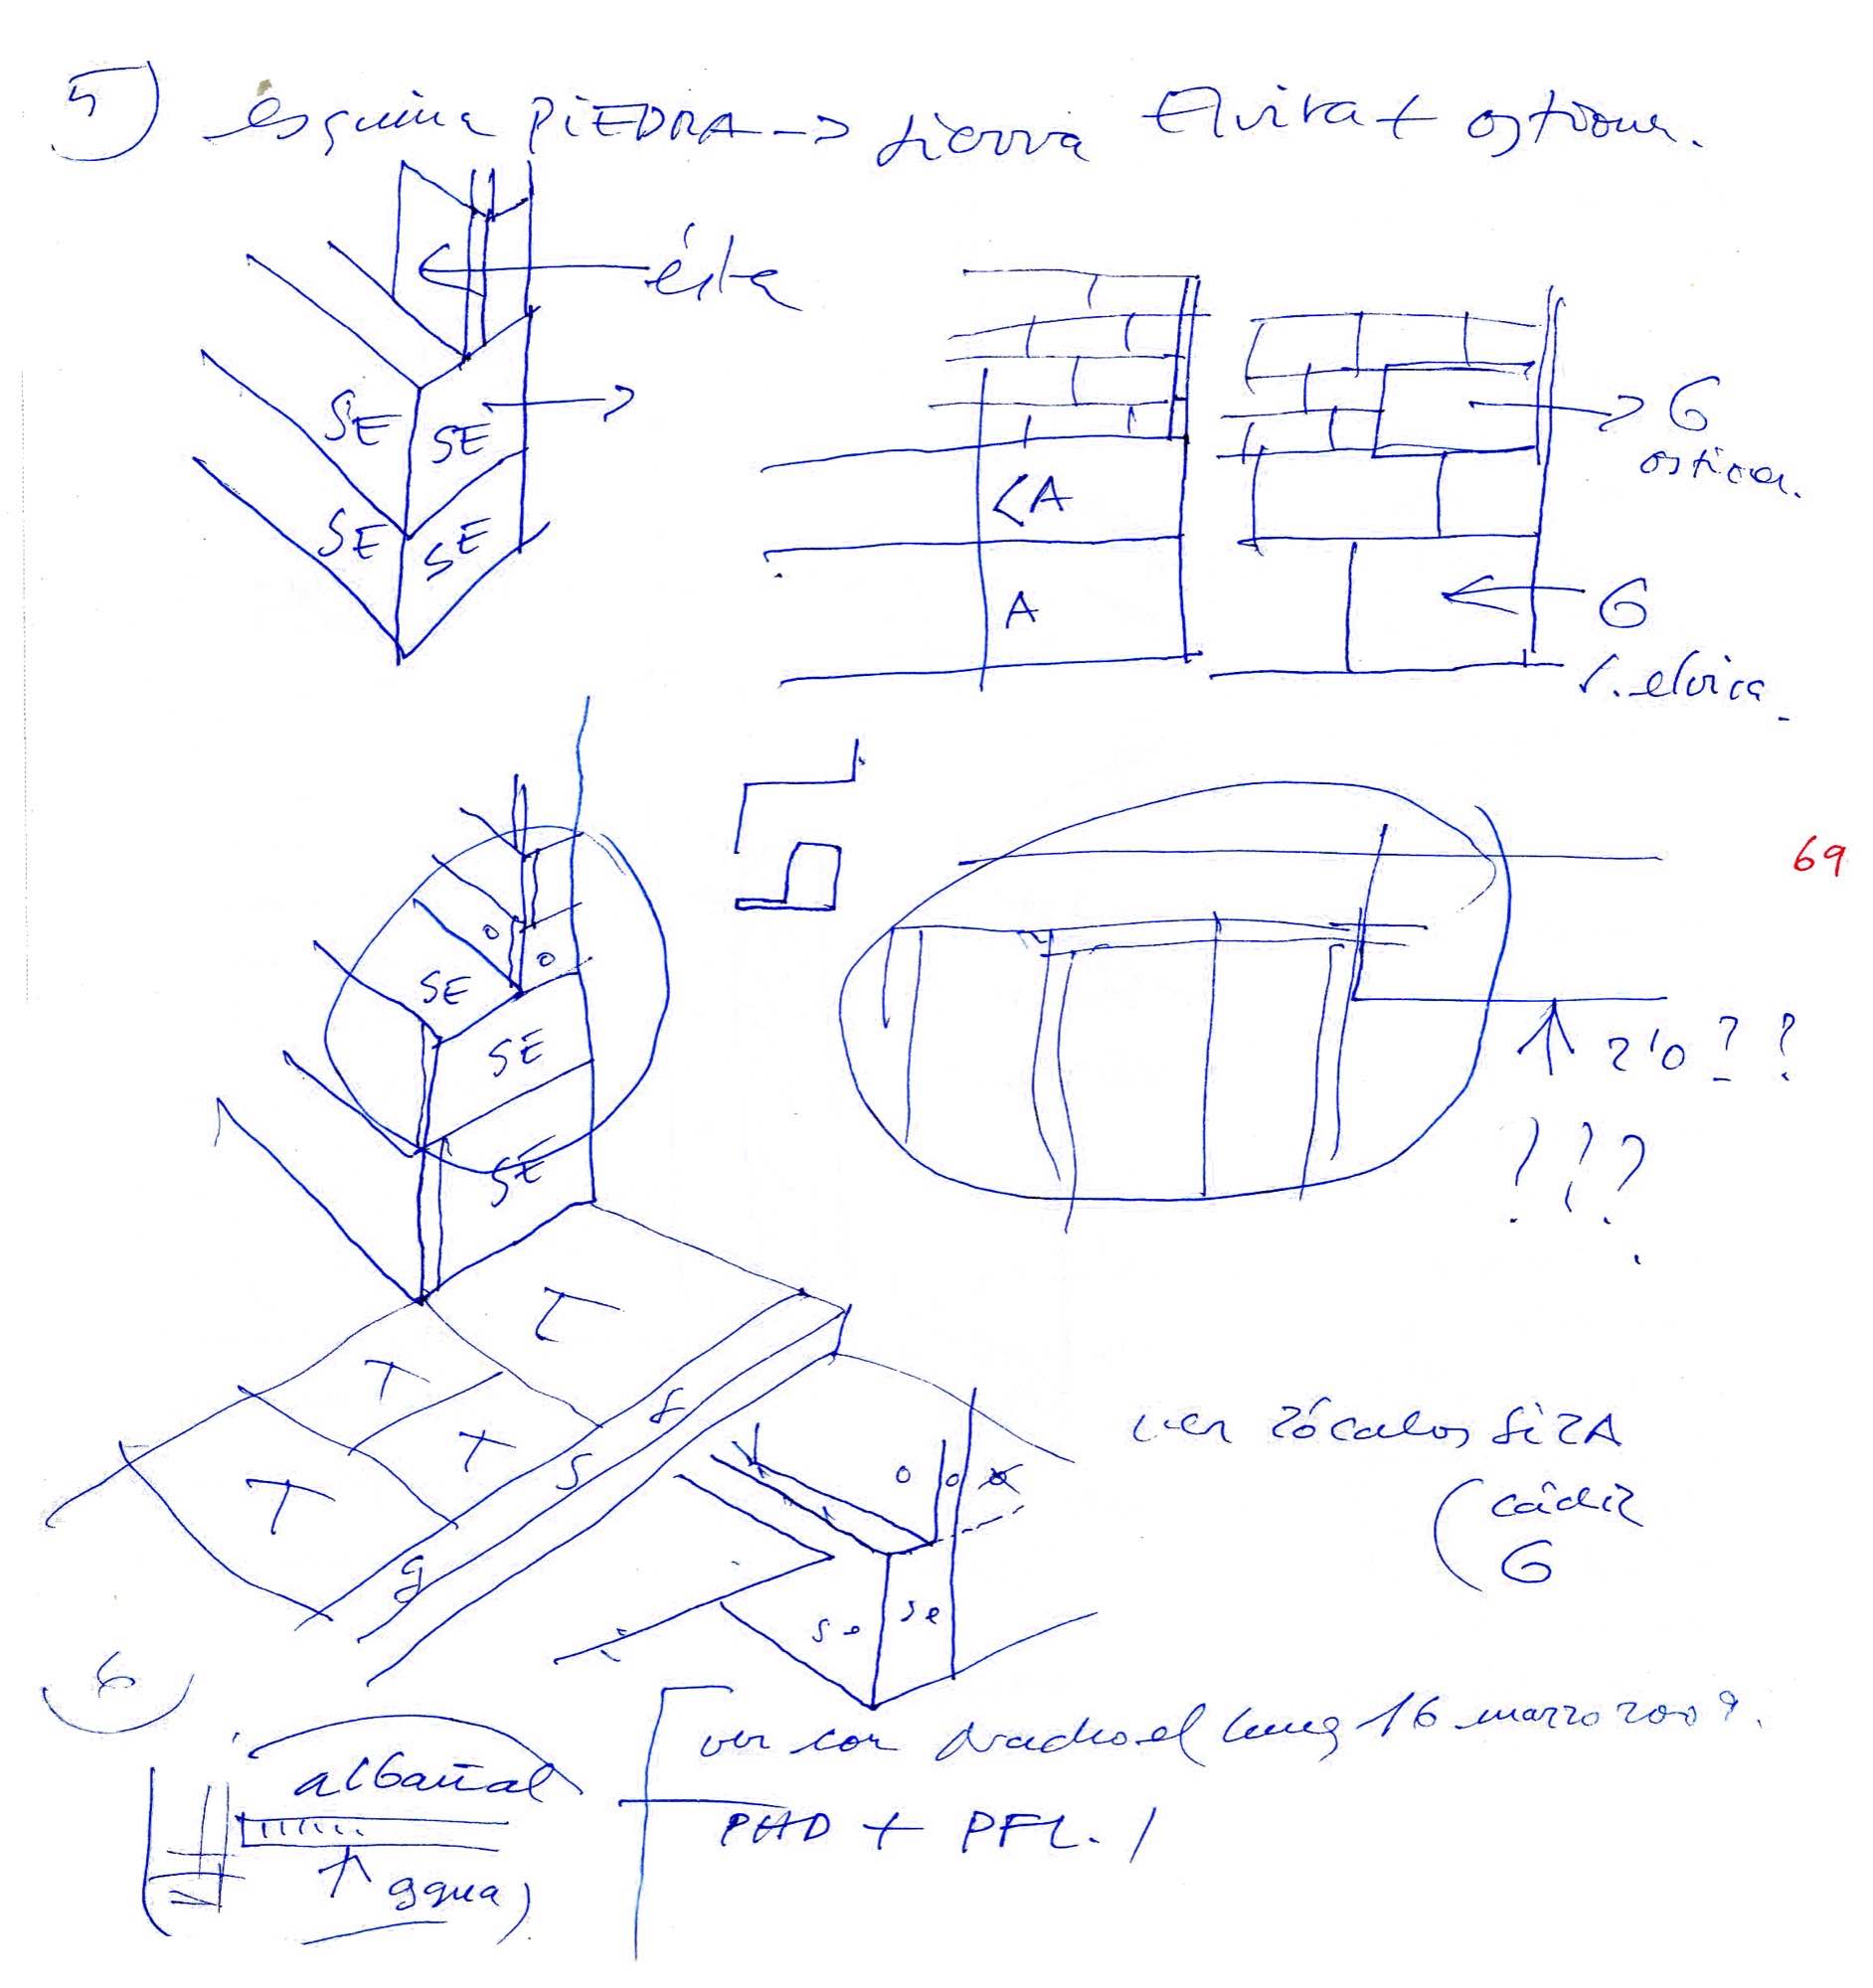 5) esquina PIEDRA -> sierra Elvira + ostion.
ésta
SE SE
SE SE
<A
A
6
ostion.
6
s. elvira.
69
O
O
SE
SE
SE
2'0 ? ?
! ? ?
T
T
T
T
g
ver zócalos SiZA
(cádiz
6
O O
se se
6)
albañal
agua)
ver con el lunes 16 marzo 2009.
PHD + PFL. /